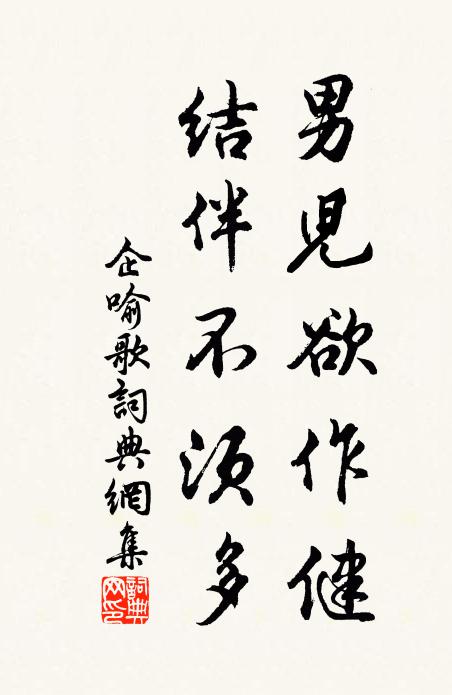 男兒欲作健
結伴不須多
企喻歌詞典網集
詞典
网印